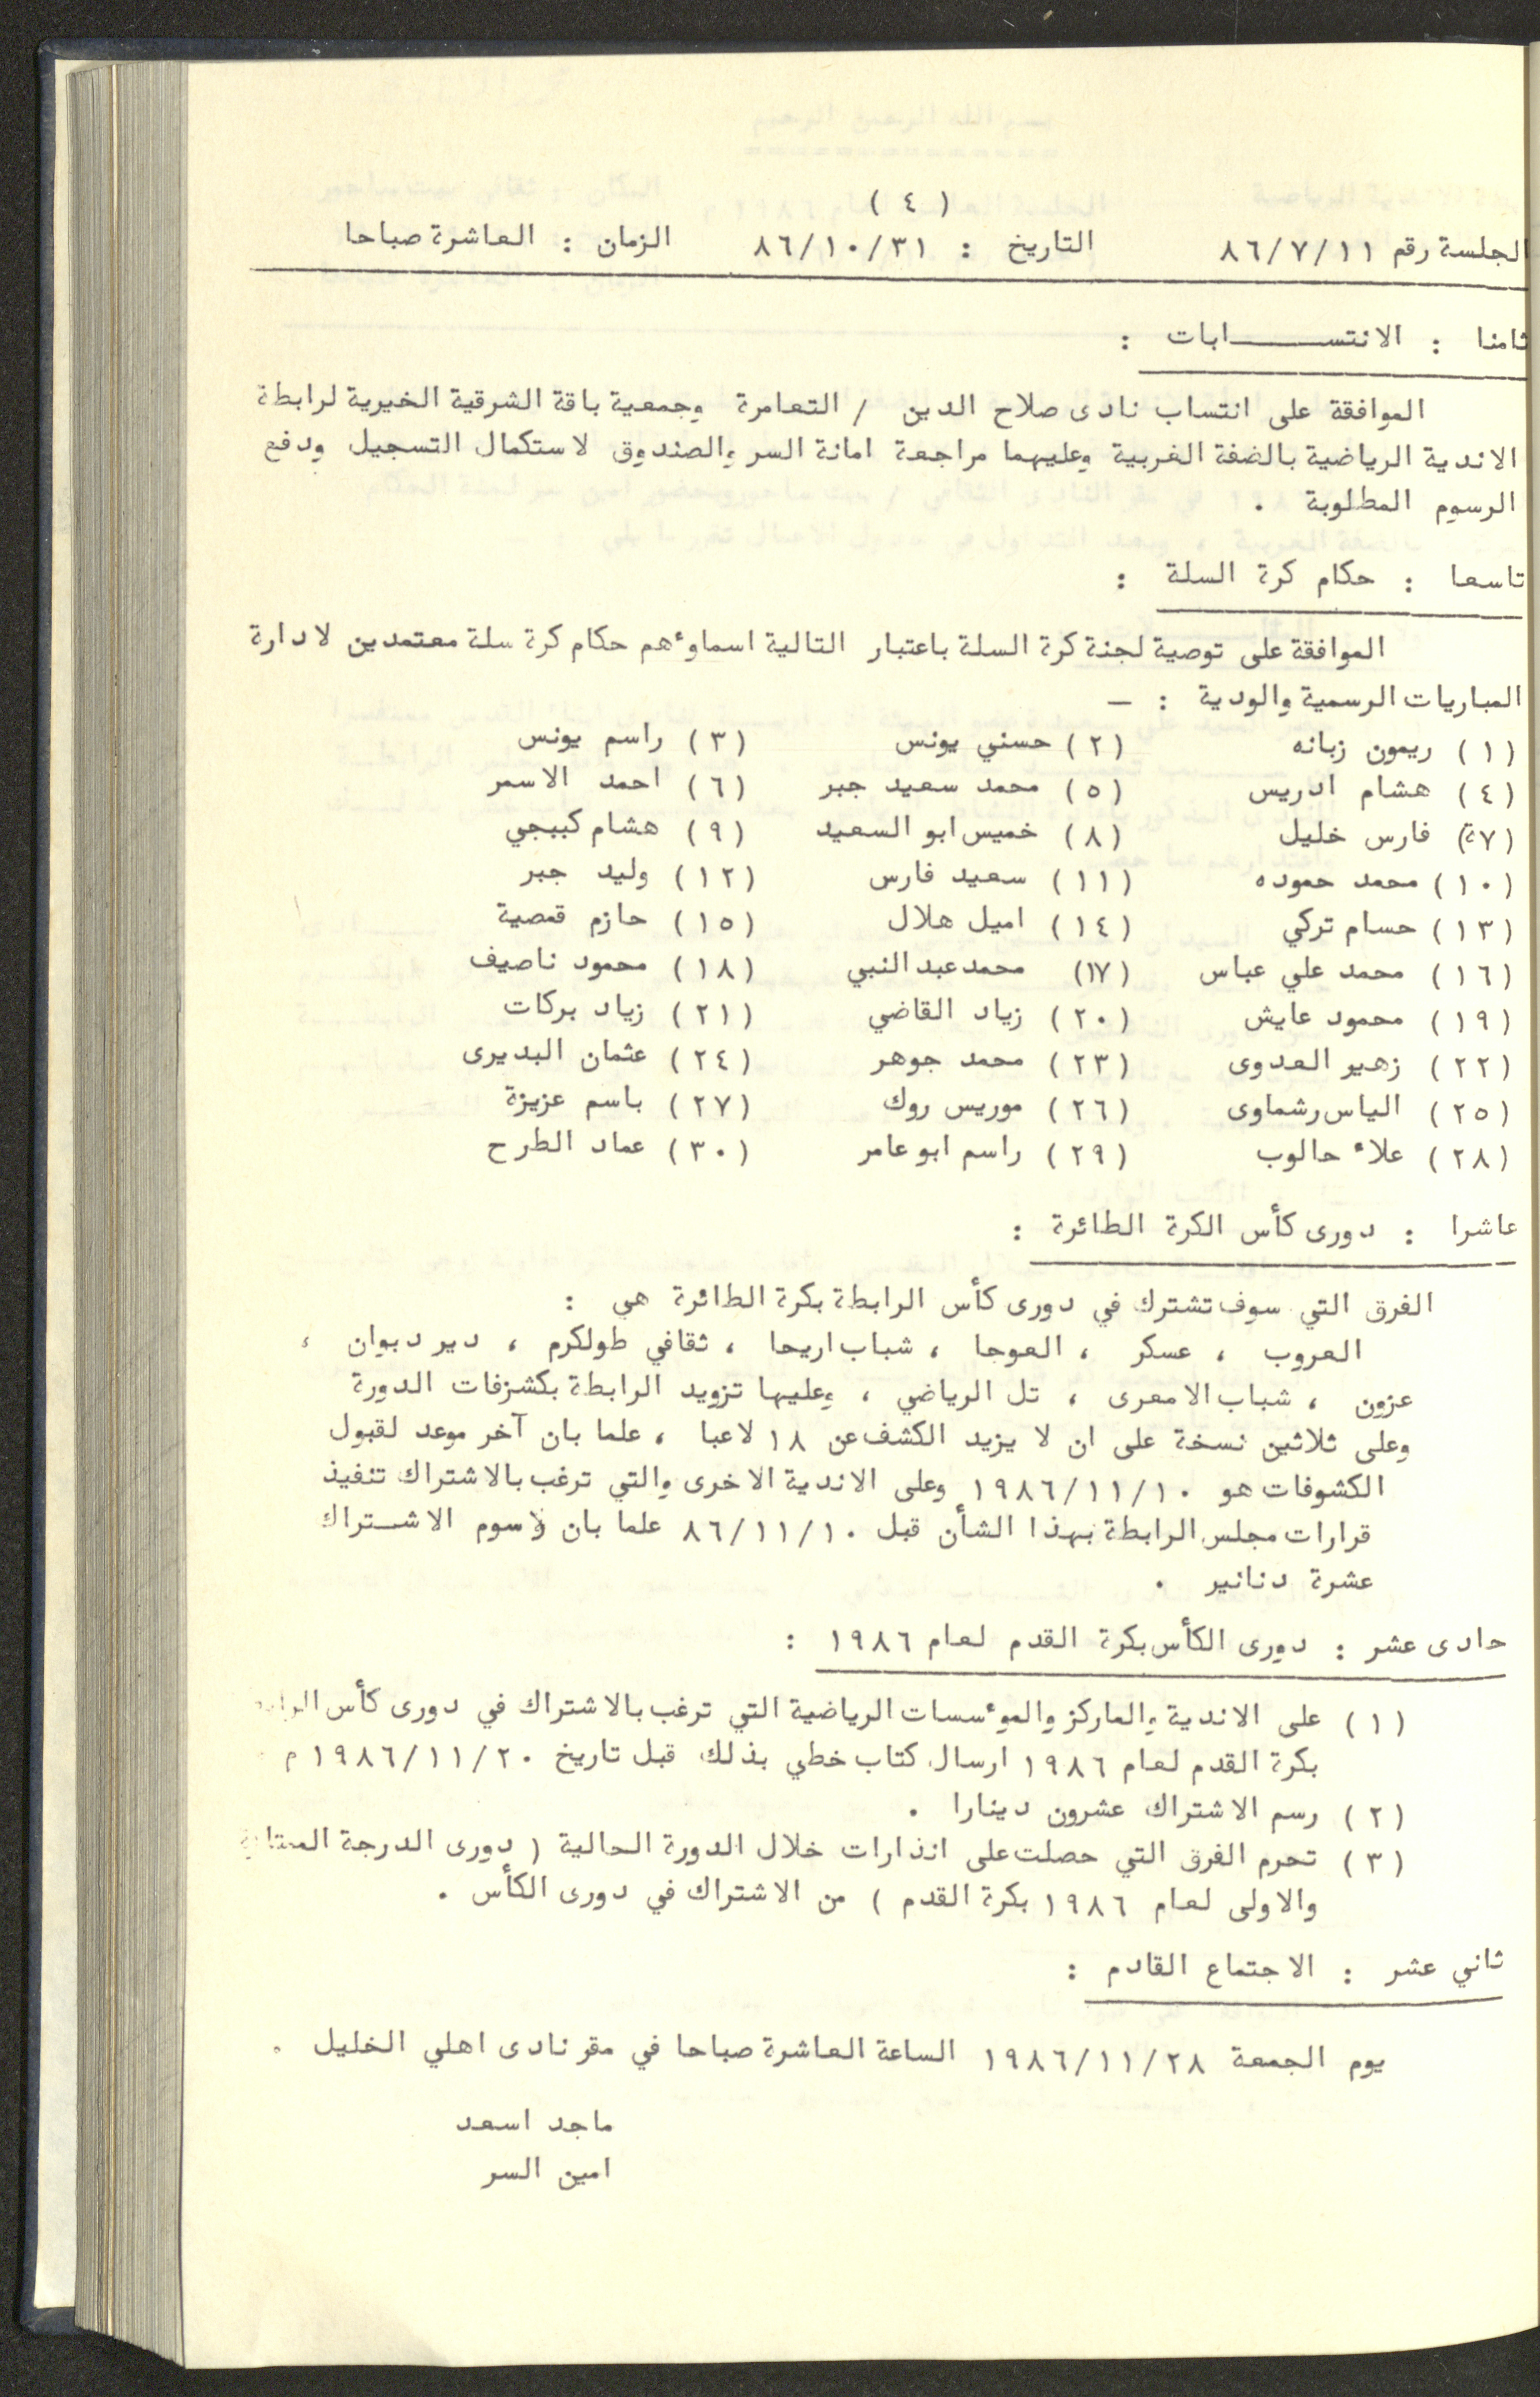 ( ٤ )
الجلسة رقم ٨٦/٧/١١ التاريخ : ٨٦/١٠/٣١ الزمان : العاشرة صباحا
ثامنا : الانتســـــابات :
الموافقة على انتساب نادى صلاح الدين / التعامرة وجمعية باقة الشرقية الخيرية لرابطة
الاندية الرياضية بالضفة الغربية وعليهما مراجعة امانة السر والصندوق لاستكمال التسجيل ودفع
الرسوم المطلوبة .
تاسعا : حكام كرة السلة :
الموافقة على توصية لجنة كرة السلة باعتبار التالية اسماوءهم حكام كرة سلة معتمدين لادارة
المباريات الرسمية والودية : –
(١) ريمون زبانه (٢) حسني يونس (٣) راسم يونس
(٤) هشام ادريس (٥) محمد سعيد جبر (٦) احمد الاسمر
(٧) فارس خليل (٨) خميس ابو السعيد (٩) هشام كبيجي
(١٠) محمد حموده (١١) سعيد فارس (١٢) وليد جبر
(١٣) حسام تركي (١٤) اميل هلال (١٥) حازم قمصية
(١٦) محمد علي عباس (١٧) محمد عبد النبي (١٨) محمود ناصيف
(١٩) محمود عايش (٢٠) زياد القاضي (٢١) زياد بركات
(٢٢) زهير العدوى (٢٣) محمد جوهر (٢٤) عثمان البديرى
(٢٥) الياس رشماوى (٢٦) موريس روك (٢٧) باسم عزيزة
(٢٨) علاء حالوب (٢٩) راسم ابو عامر (٣٠) عماد الطرح
عاشرا : دورى كأس الكرة الطائرة :
الفرق التي سوف تشترك في دورى كأس الرابطة بكرة الطائرة هي :
العروب ، عسكر ، العوجا ، شباب اريحا ، ثقافي طولكرم ، دير دبوان ،
عزون ، شباب الامعرى ، تل الرياضي ، وعليها تزويد الرابطة بكشزفات الدورة
وعلى ثلاثين نسخة على ان لا يزيد الكشف عن ١٨ لاعبا ، علما بان آخر موعد لقبول
الكشوفات هو ١٩٨٦/١١/١٠ وعلى الاندية الاخرى والتي ترغب بالاشتراك تنفيذ
قرارات مجلس الرابطة بهذا الشأن قبل ٨٦/١١/١٠ علما بان رسوم الاشــتراك
عشرة دنانير .
حادى عشر : دورى الكأس بكرة القدم لعام ١٩٨٦ :
(١) على الاندية والماركز والموءسسات الرياضية التي ترغب بالاشتراك في دورى كأس
بكرة القدم لعام ١٩٨٦ ارسال كتاب خطي بذلك قبل تاريخ ١٩٨٦/١١/٢٠ م
(٢) رسم الاشتراك عشرون دينارا .
(٣) تحرم الفرق التي حصلت على انذارات خلال الدورة الحالية ( دورى الدرجة
والاولى لعام ١٩٨٦ بكرة القدم ) من الاشتراك في دورى الكأس .
ثاني عشر : الاجتماع القادم :
يوم الجمعة ١٩٨٦/١١/٢٨ الساعة العاشرة صباحا في مقر نادى اهلي الخليل .
ماجد اسعد
امين السر